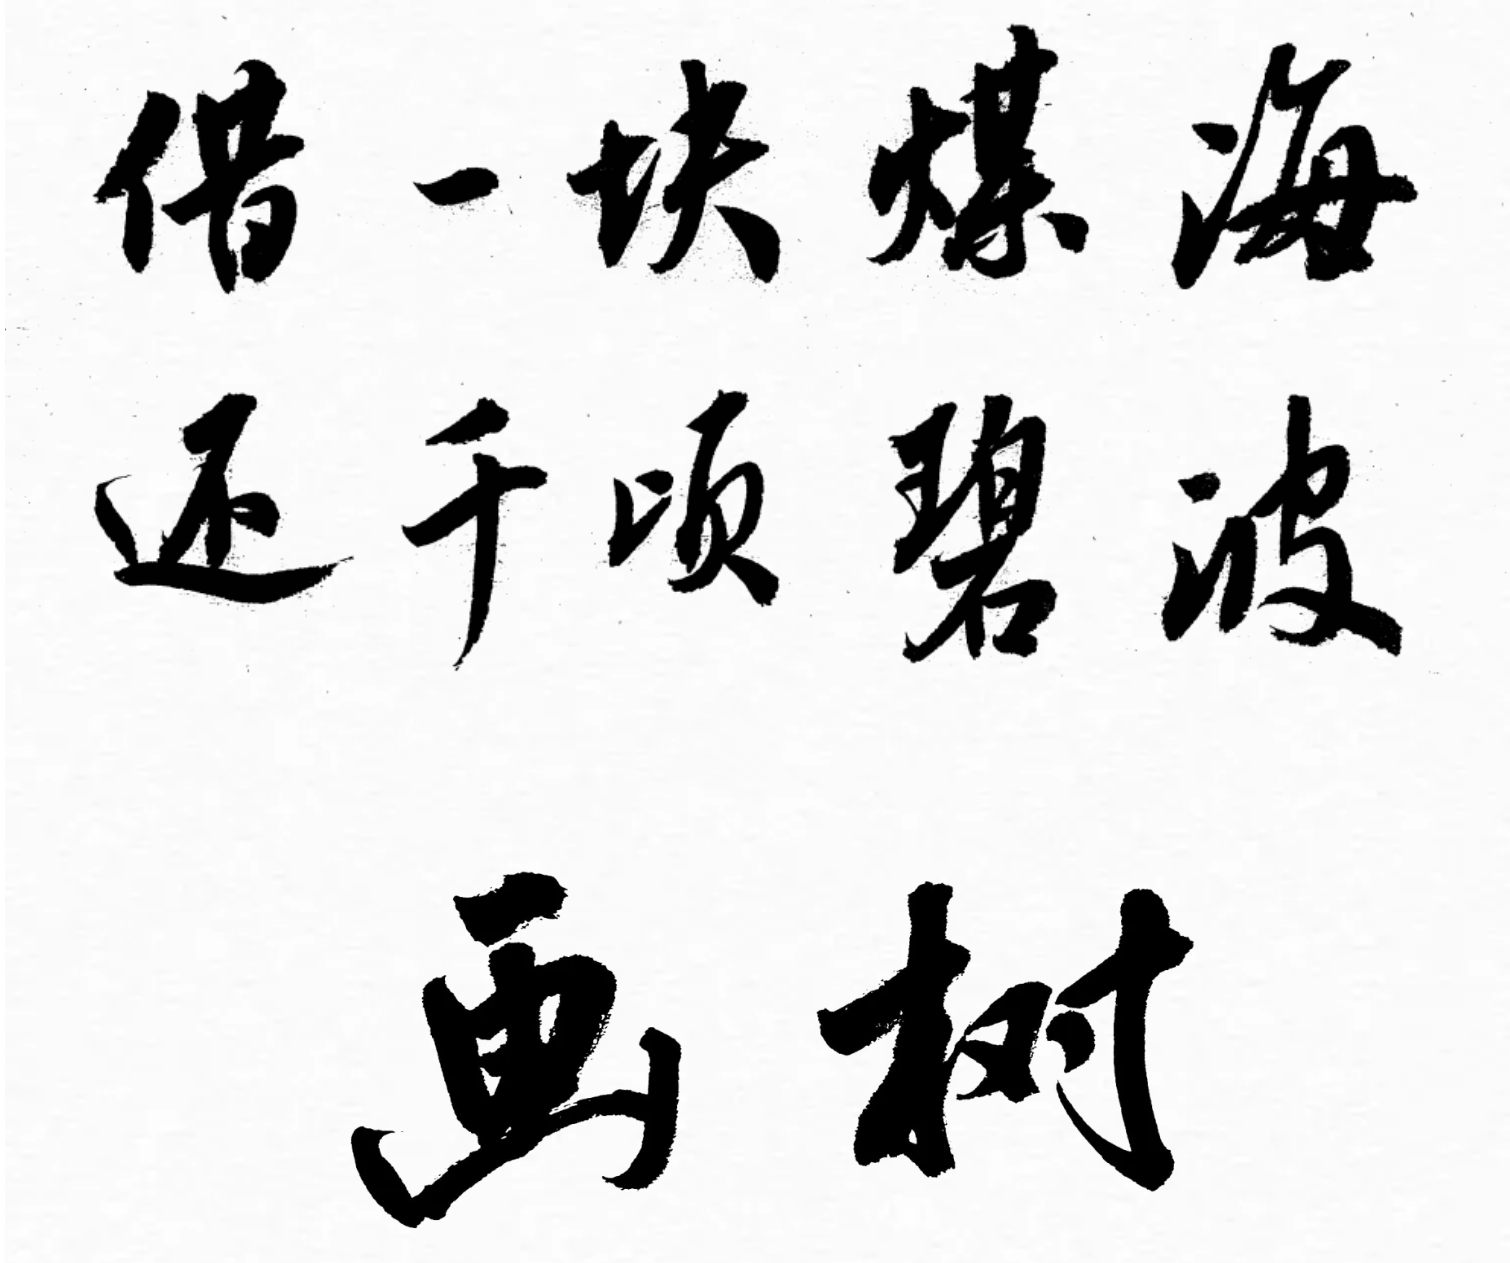 借一块煤海
还千顷碧波
画树